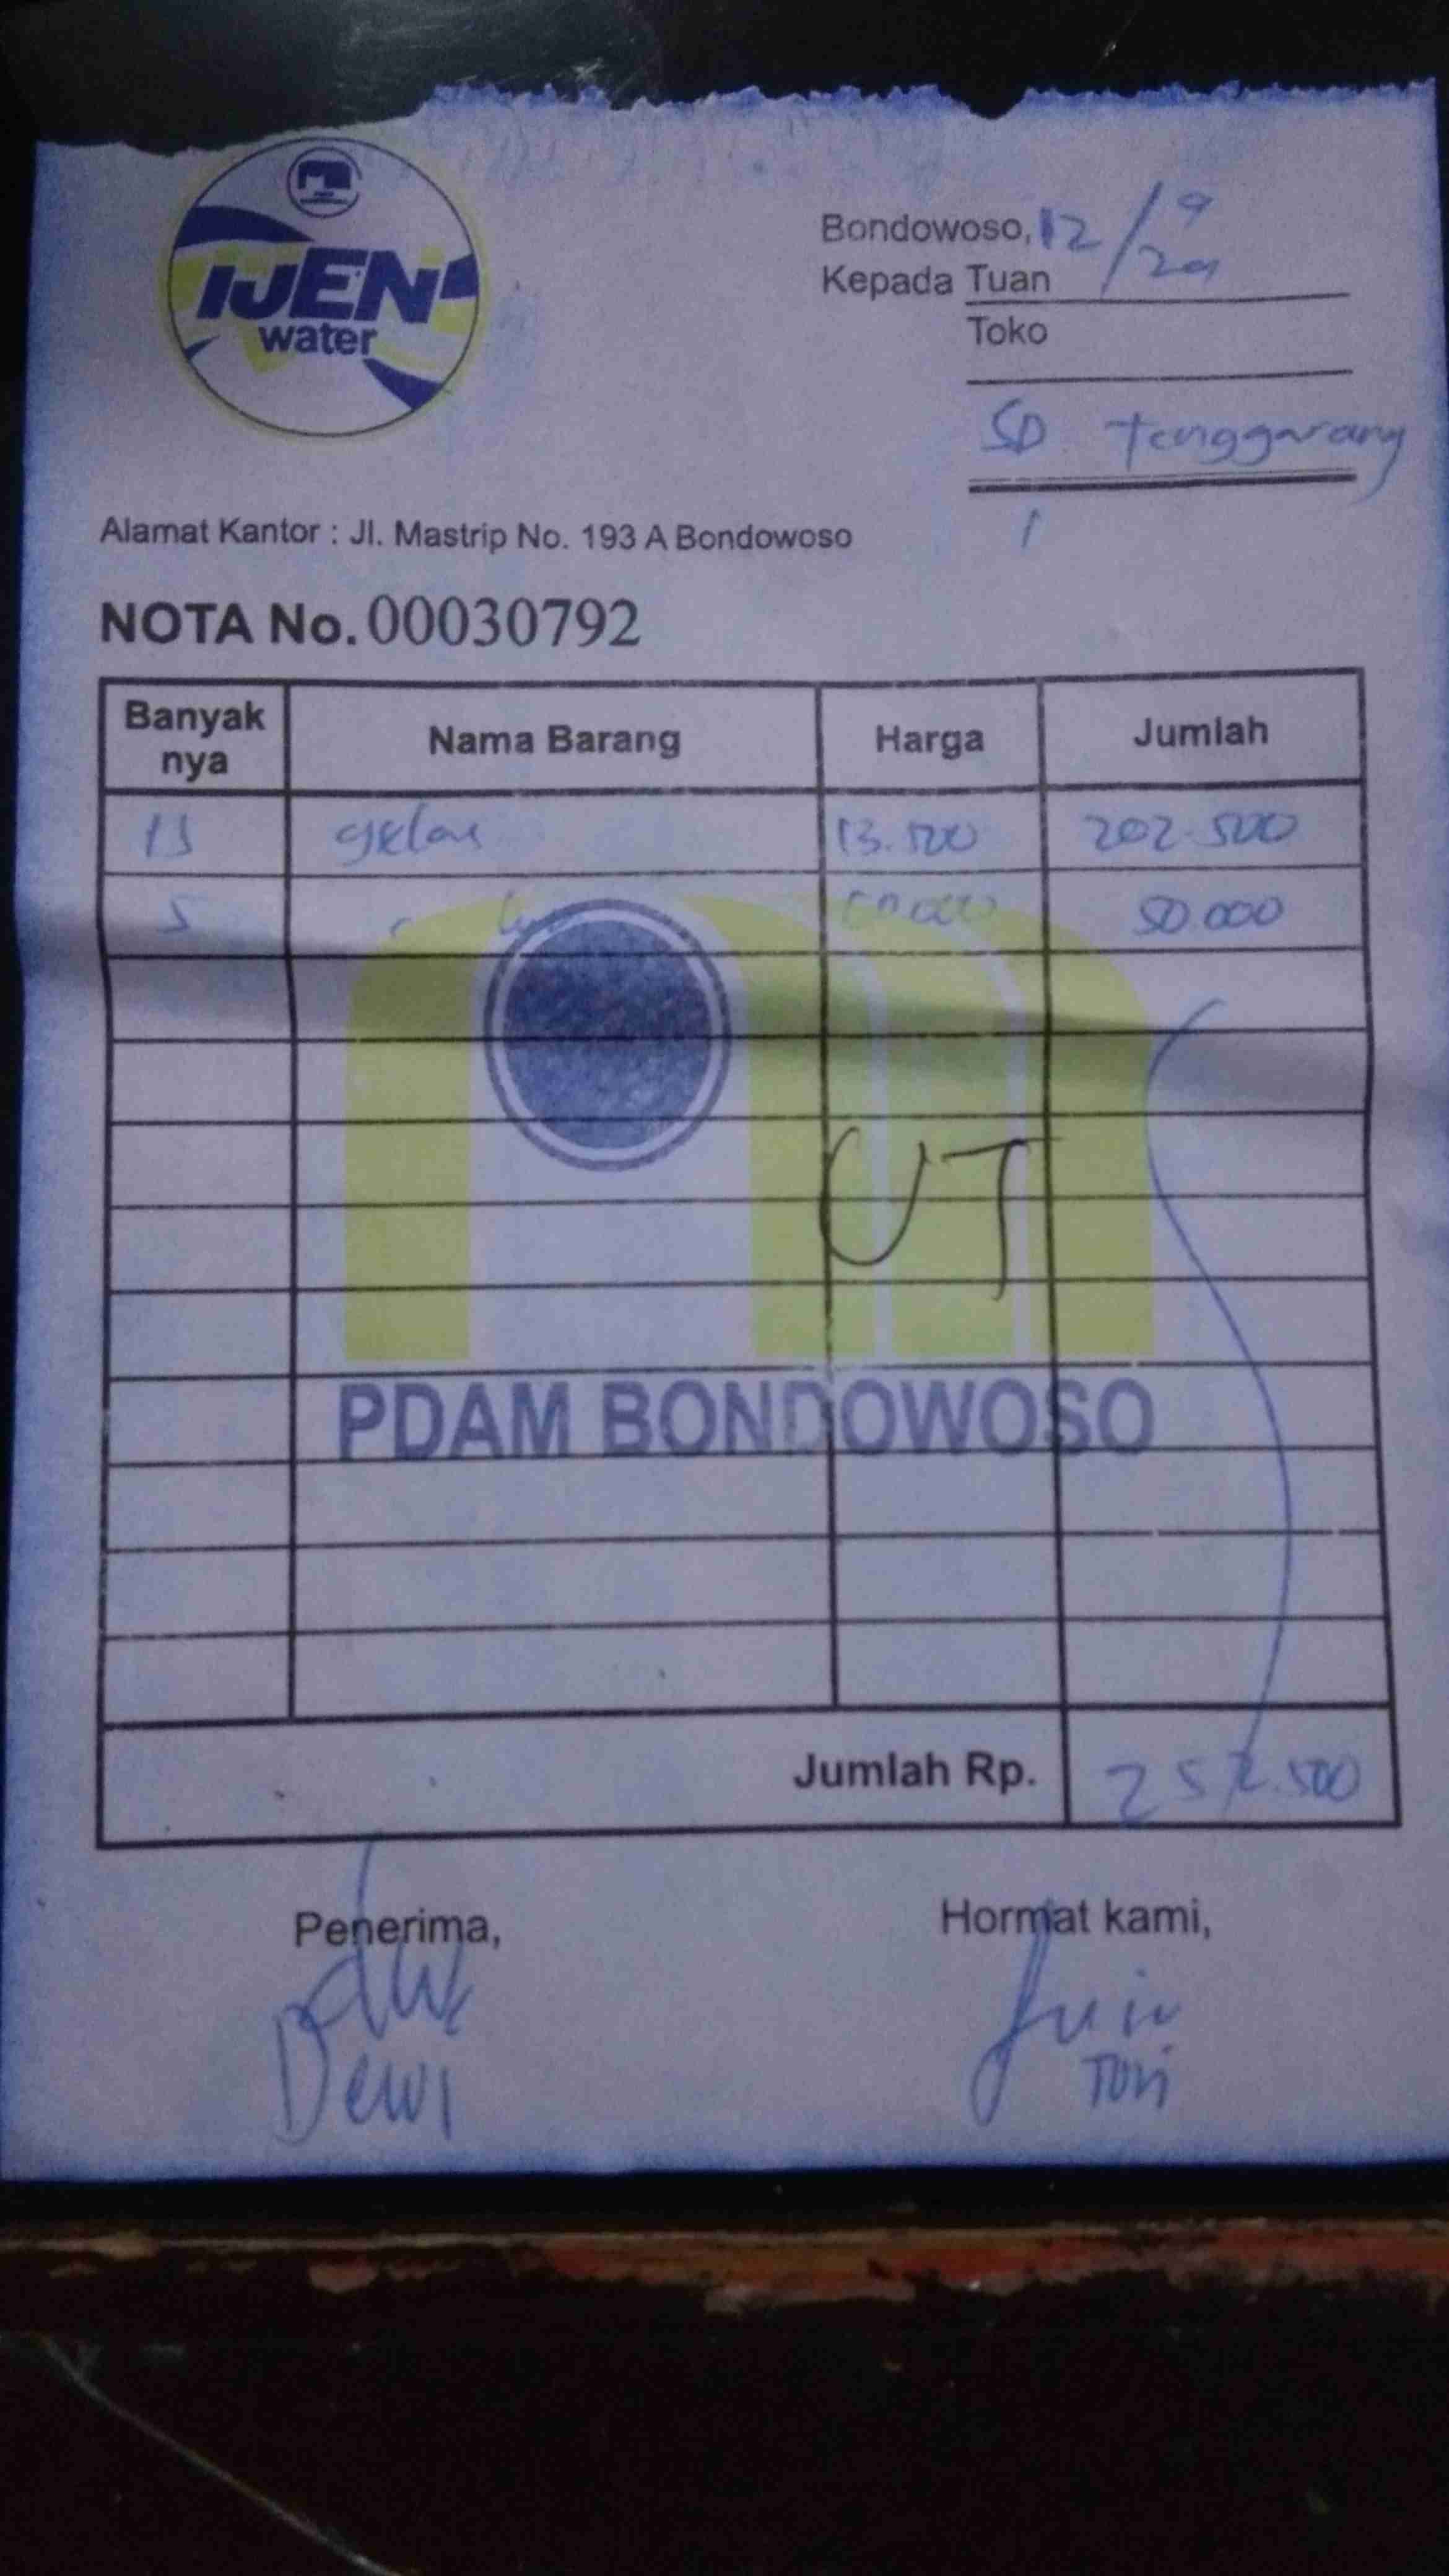 IJEN
water
Bondowoso, 12/9
Kepada Tuan
Toko
SD Tenggarang
1
Alamat Kantor : Jl. Mastrip No. 193 A Bondowoso
NOTA No. 00030792
Banyak nya Nama Barang Harga Jumlah
15 gelas 13.500 202.500
5 50.000
UT
PDAM BONDOWOSO
Jumlah Rp. 252.500
Penerima, Hormat kami,
Dewi